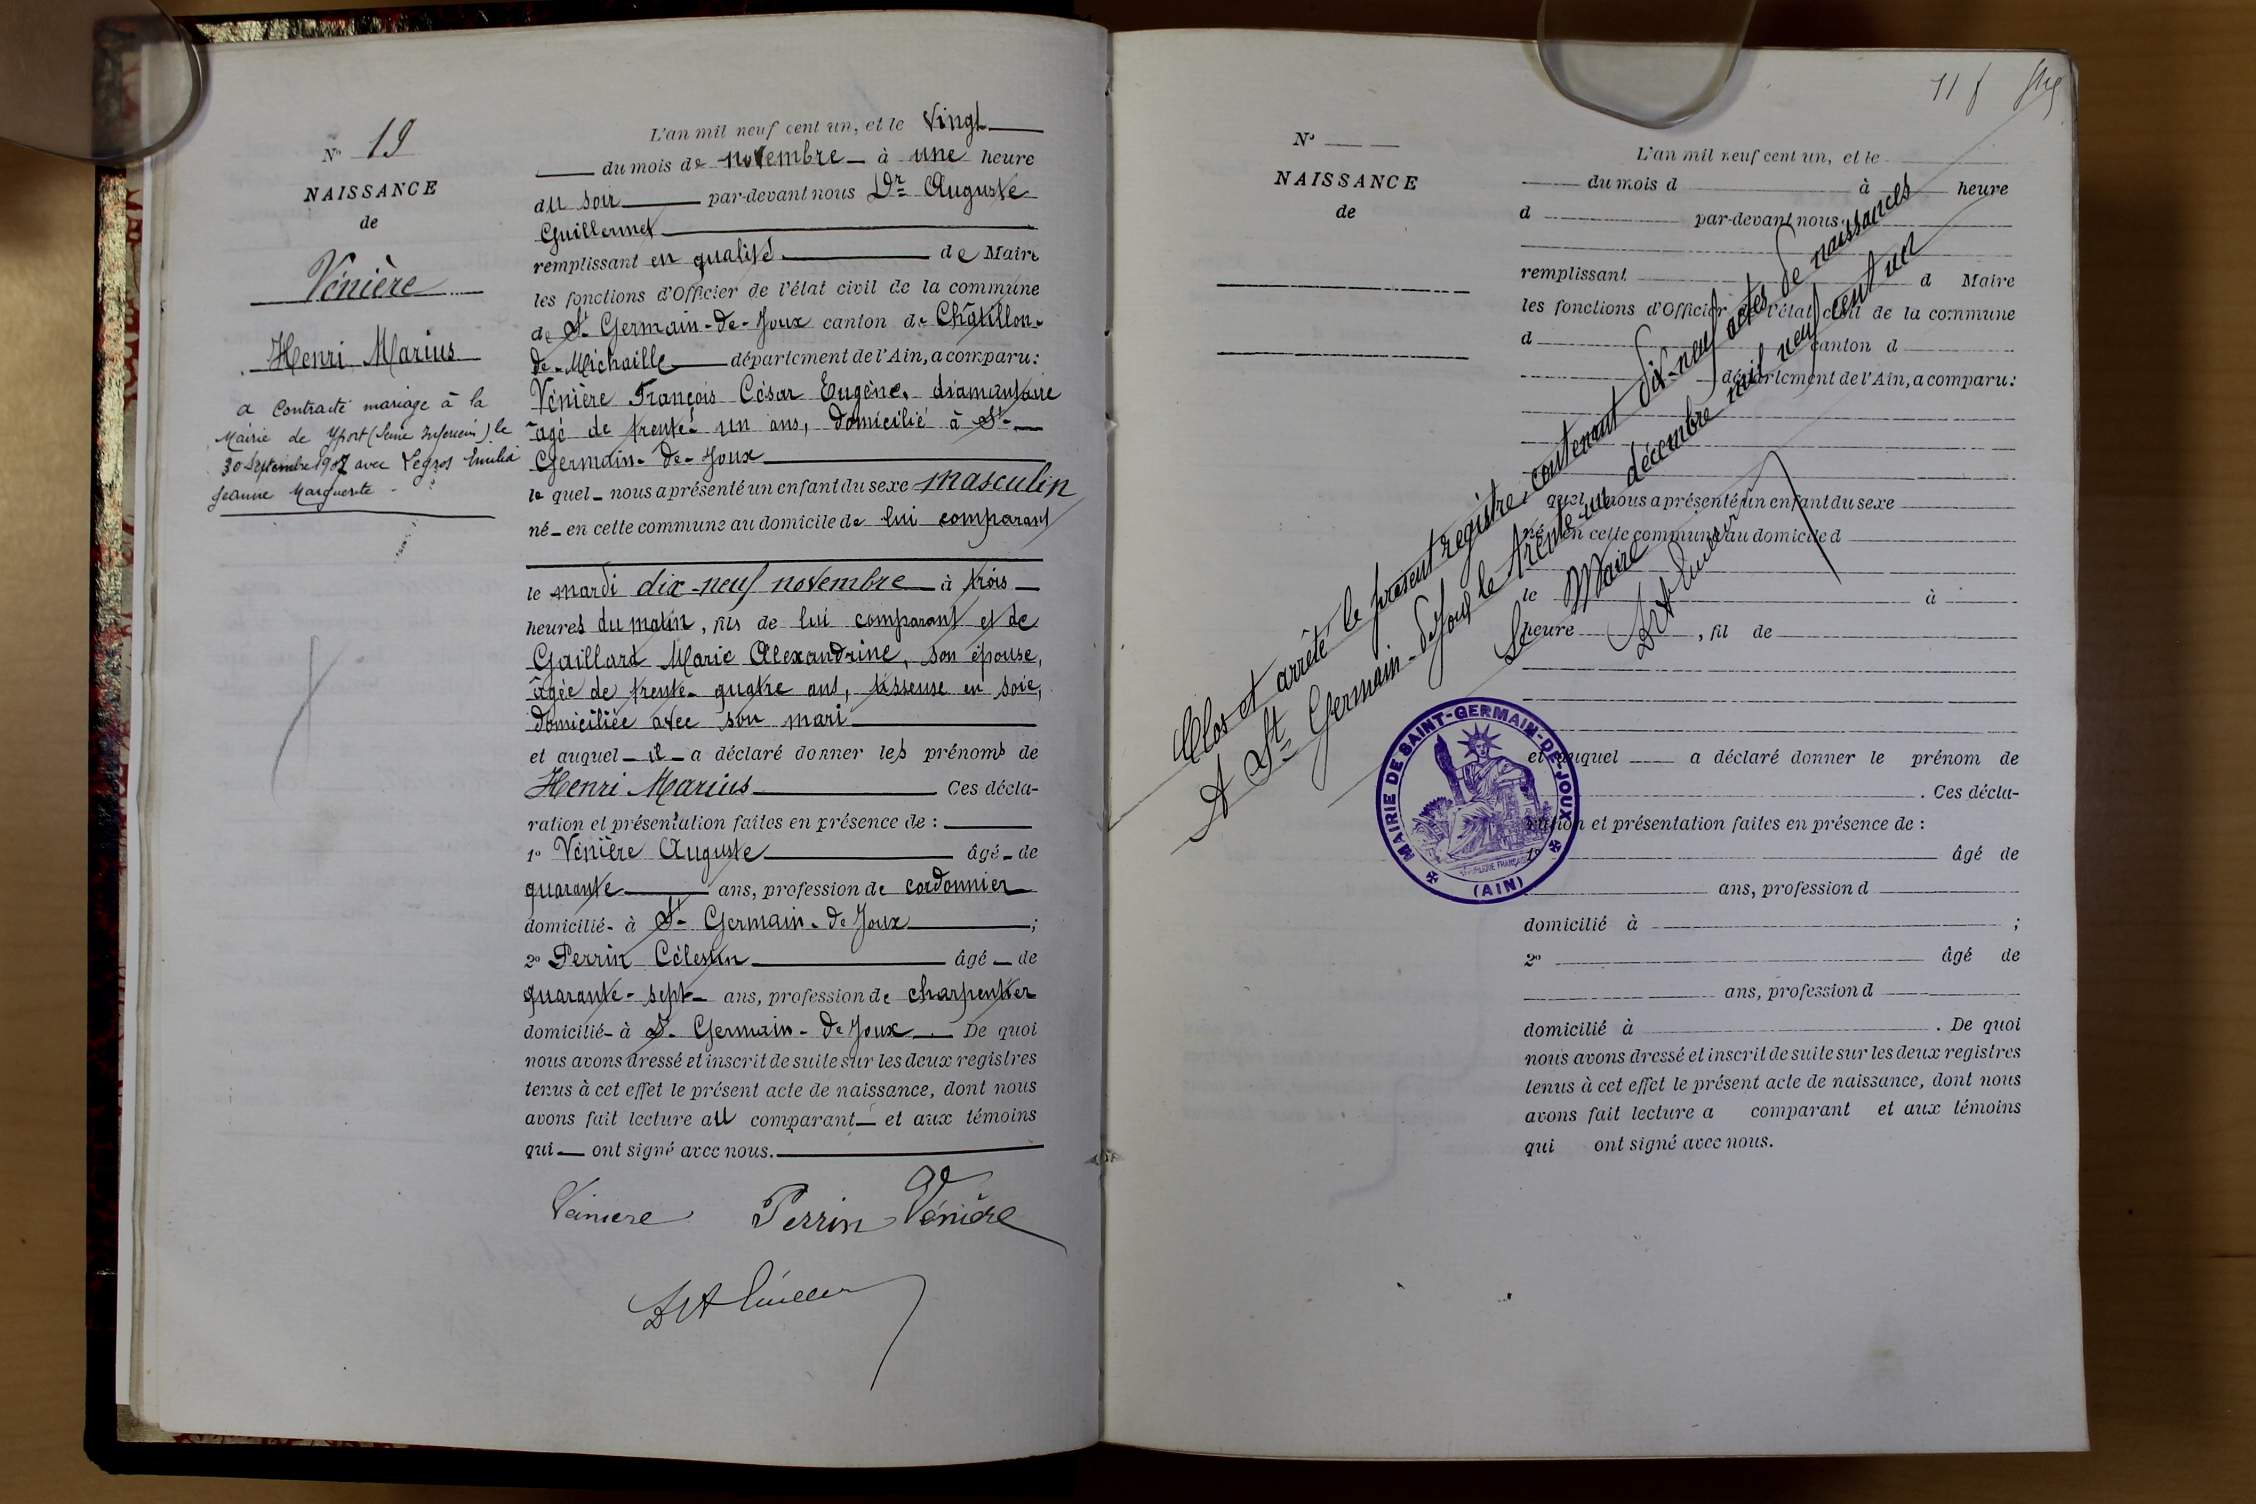 N° 19
NAISSANCE
de
Vénière
Henri Marius
a contracté mariage à la
Mairie de Yport (Seine Inférieure) le
30 Septembre 1927 avec Legros Emilia
Jeanne Marguerite
L'an mil neuf cent un, et le vingt
du mois de novembre à une heure
du soir par-devant nous Dr Auguste
Guillermet
remplissant en qualité de Maire
les fonctions d'Officier de l'état civil de la commune
de St Germain-de-Joux canton de Châtillon-
de-Michaille département de l'Ain, a comparu:
Vénière François César Eugène, diamantaire
âgé de trente-un ans, domicilié à St-
Germain-de-Joux
le quel nous a présenté un enfant du sexe masculin
né en cette commune au domicile de lui comparant
le mardi dix-neuf novembre à trois
heures du matin, fils de lui comparant et de
Gaillard Marie Alexandrine, son épouse,
âgée de trente-quatre ans, tisseuse en soie,
domiciliée avec son mari
et auquel il a déclaré donner les prénoms de
Henri Marius Ces décla-
ration et présentation faites en présence de :
1° Vénière Auguste âgé de
quarante ans, profession de cordonnier
domicilié à St Germain-de Joux ;
2° Perrin Célestin âgé de
quarante-sept ans, profession de charpentier
domicilié à St Germain-de Joux. De quoi
nous avons dressé et inscrit de suite sur les deux registres
tenus à cet effet le présent acte de naissance, dont nous
avons fait lecture au comparant et aux témoins
qui ont signé avec nous.
Perrin Vénière
11 f
N°
NAISSANCE
de
L'an mil neuf cent un, et le
du mois d à heure
d par-devant nous
remplissant d Maire
les fonctions d'Officier de l'état civil de la commune
d canton d
département de l'Ain, a comparu:
quel nous a présenté un enfant du sexe
né en cette commune au domicile d
le à
heure , fil de
et auquel a déclaré donner le prénom de
. Ces décla-
ration et présentation faites en présence de :
1° âgé de
ans, profession d
domicilié à ;
2° âgé de
ans, profession d
domicilié à . De quoi
nous avons dressé et inscrit de suite sur les deux registres
tenus à cet effet le présent acte de naissance, dont nous
avons fait lecture a comparant et aux témoins
qui ont signé avec nous.
Clos et arrêté le présent registre, contenant dix-neuf actes de naissances
A St Germain-de Joux le trente-un décembre mil neuf cent un
Le Maire
MAIRIE DE SAINT-GERMAIN-DE-JOUX
RÉPUBLIQUE FRANÇAISE
(AIN)